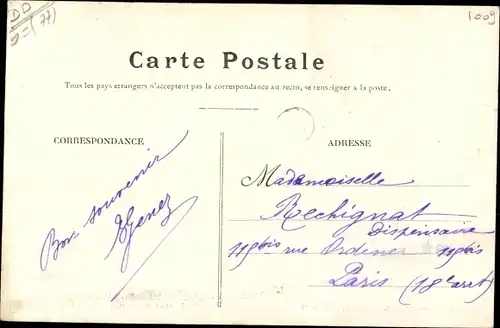 DD
(77)
1009
Carte Postale
Tous les pays etrangers n'acceptent pas la correspondance au recto, se renseigner à la poste.
CORRESPONDANCE
ADRESSE
Bon souvenir
Mademoiselle
Rechignat
Dispensaire
119bis rue Ordener 119bis
Paris (18e arrt)